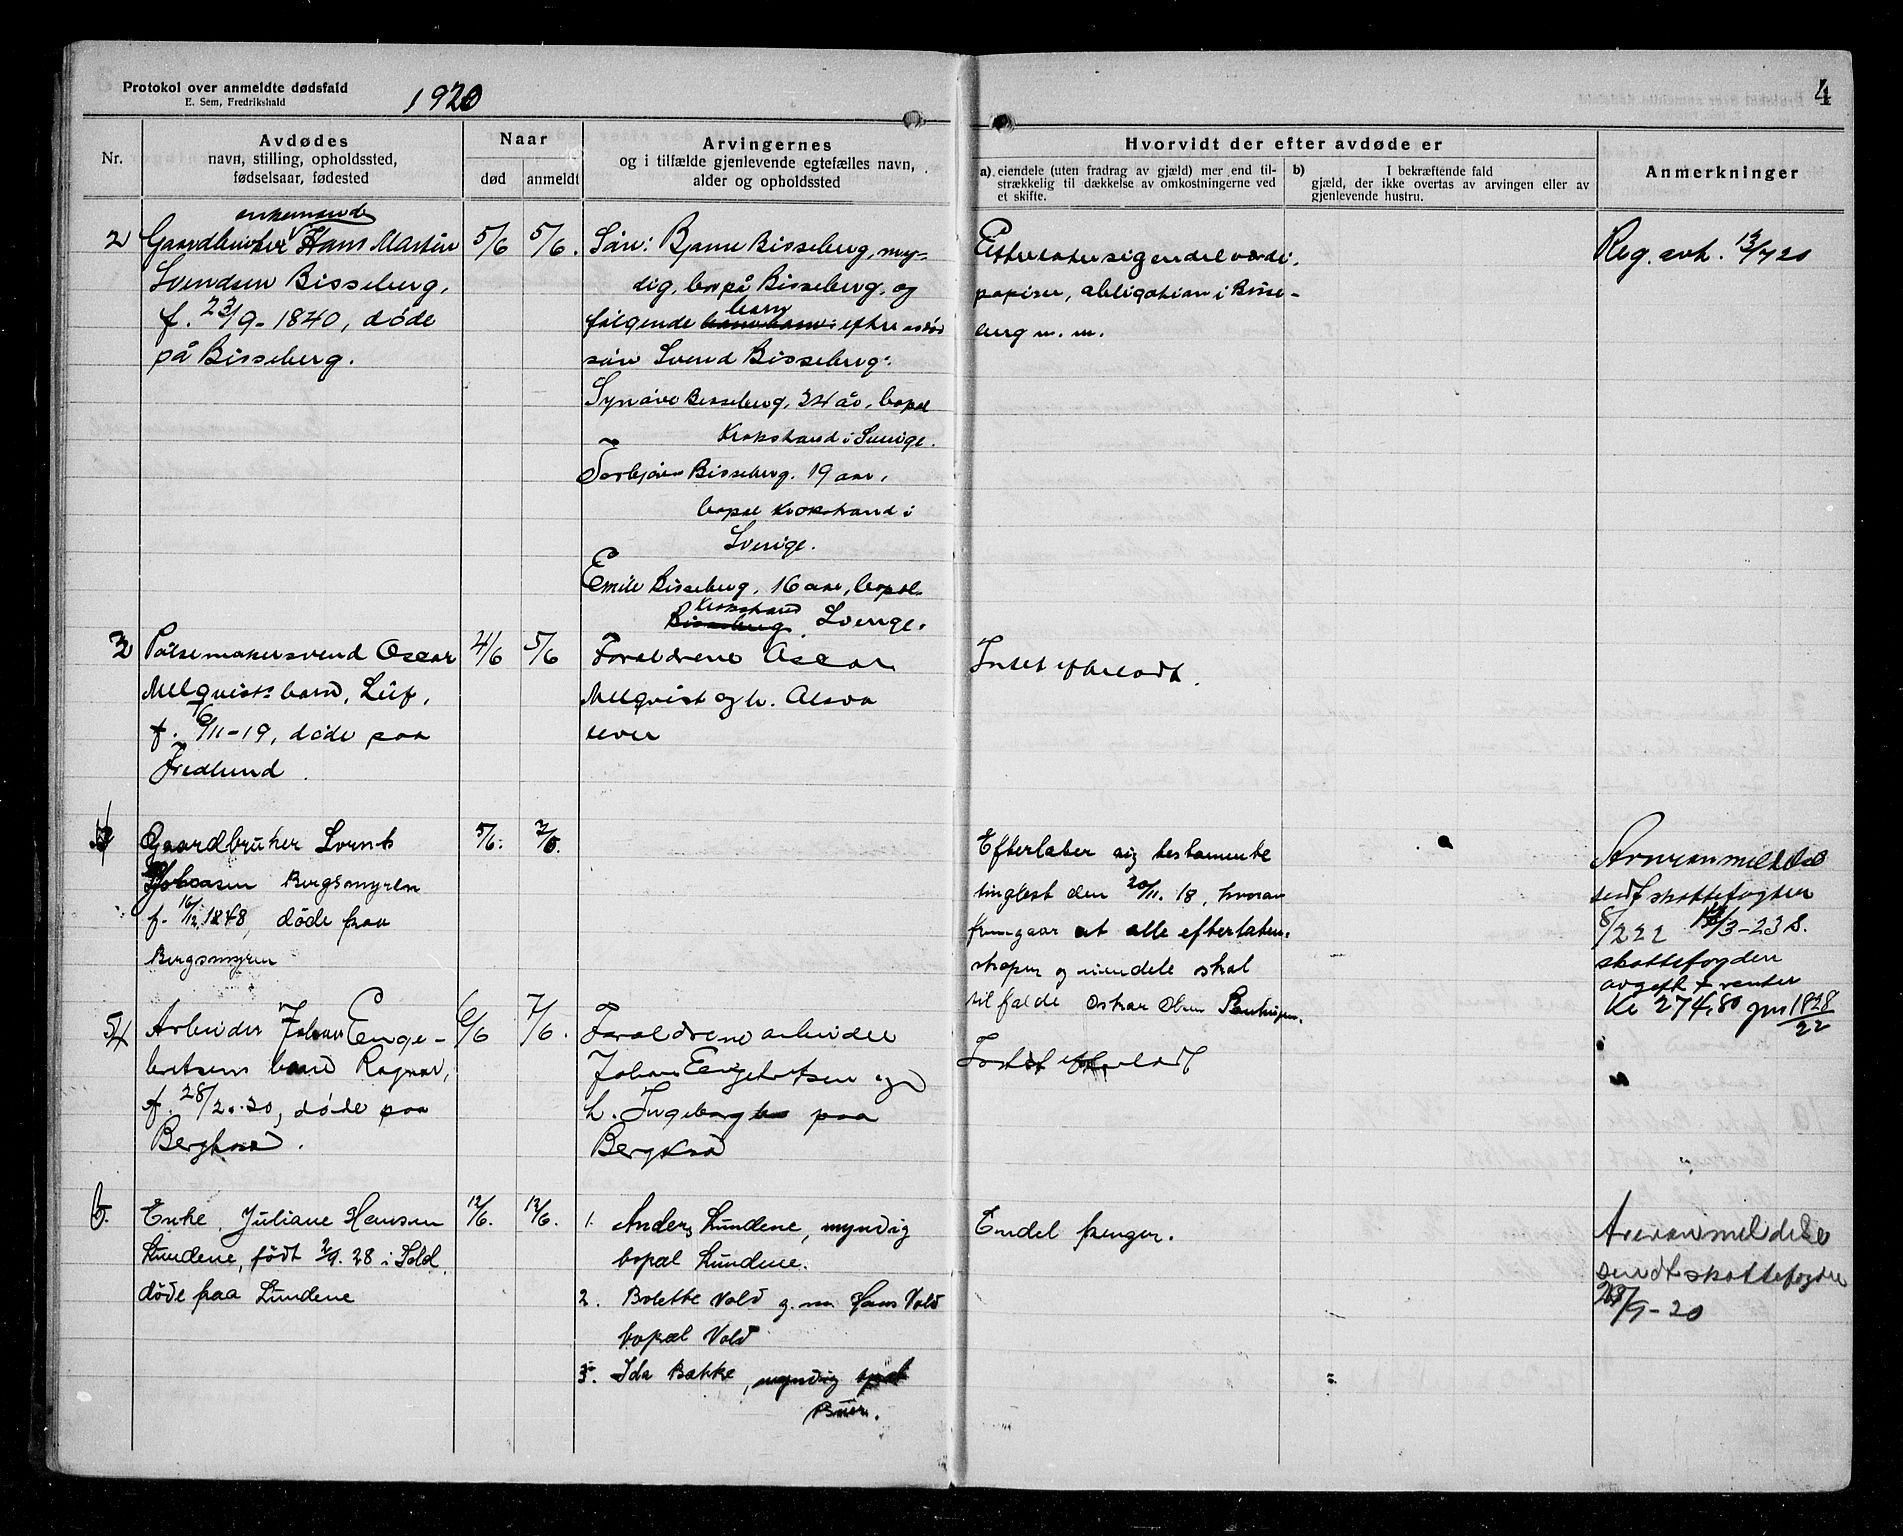 Protokol over anmeldte dødsfald
E. Sem, Fredrikshald
1920
4
Nr.
Avdødes
navn, stilling, opholdssted,
fødselsaar, fødested
Naar
død
anmeldt
Arvingernes
og i tilfælde gjenlevende egtefælles navn,
alder og opholdssted
Hvorvidt der efter avdøde er
a) eiendele (uten fradrag av gjæld) mer end til-
strækkelig til dækkelse av omkostningerne ved
et skifte.
b) I bekræftende fald
gjæld, der ikke overtas av arvingen eller av
gjenlevende hustru.
Anmerkninger
2
enkemand
Gaardbruker Hans Martin
Svendsen Bisseberg,
f. 23/9-1840, døde
på Bisseberg.
5/6
5/6.
Søn: Bjarne Bisseberg, myn-
dig, bor på Bisseberg, og
følgende barn efter
søn Svend Bisseberg:
Synøve Bisseberg, 24 år, bopæl
Krokstrand i Sverige.
Torbjørn Bisseberg. 19 aar,
bopæl Krokstrand i
Sverige.
Emile Bisseberg, 16 aar, bopæl
Krokstrand
Bisseberg, Sverige.
Efterlater sig endel værdi-
papirer, obligation i Bisse-
berg m. m.
Reg. avh. 13/7 20
3
Pølsemakersvend Oscar
Melqvists barn, Leif,
f. 6/11-19, døde paa
Fredlund.
4/6
5/6
Forældrene Oscar
Melqvist og h.
lever
Intet efterladt.
4
Gaardbruker
Johansen Bergsmyren
f. 16/12 1848, døde paa
Bergsmyren
5/6.
Efterlater sig testamente
tinglest den 20/11. 18, hvorav
fremgaar at alle efterlaten-
skaper og eiendele skal
tilfalde Oskar Olsen
Arveanmeldelse
sendt skattefogden
8/2 22 14/3-23 S.
skattefogden
avgift + renter
Kr 274,80 1828/22
5
Arbeider Johan Enge-
bretsens barn Ragnar,
f. 28/2.-20, døde paa
6/6
7/6.
Forældrene arbeider
Johan Engebretsen og
h. Ingeborg paa
Intet efterladt
6.
Enke Juliane Hansen
Lundene, født 2/9. 28 i Idd
døde paa Lundene
12/6.
12/6.
1. Anders Lundene, myndig
bopæl Lundene.
2. Bolette Vold g. m Hans Vold
bopæl Vold
3. Ida Bakke, myndig bopæl
Buer.
Endel penger.
Arveanmeldelse
sendt skattefogden
28/9-20